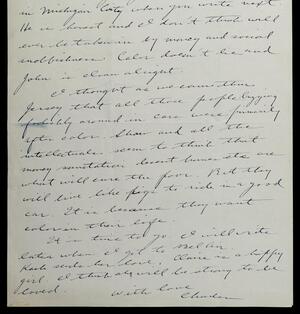 in Michigan City when you write next.
He is honest and I don't think will
ever be taken in by money and social
snobbishness. Color doesn't lie and
John is clean alright.
I thought as we came thru
Jersey that all those people
around in cars were primarily
after color. Shaw and all the
intellectuals seem to think that
money sanitation decent bunaments are
what will cure the poor. But they
will live like pigs to ride in a good
car. It is because they want
color in their life.
It is time to go. I will write
later when I get to
sends her love. Claire is a happy
girl. I think she will be strong to be
loved.
With love